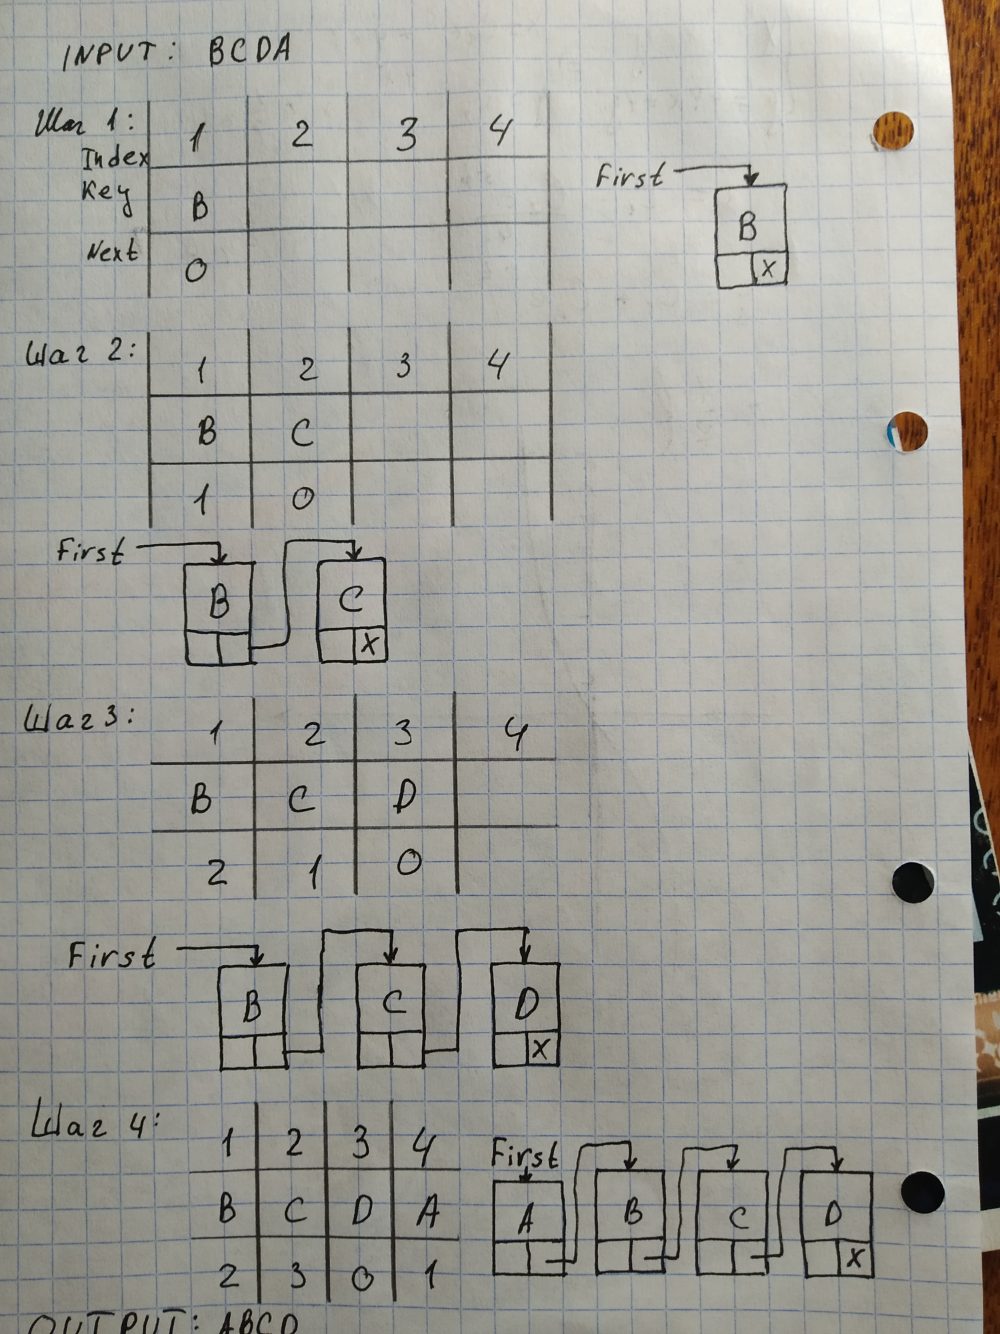 INPUT: BCDA
Шаг 1:
Index 1 2 3 4
Key B
Next 0
First
B
X
Шаг 2:
1 2 3 4
B C
1 0
First
B C
X
Шаг 3:
1 2 3 4
B C D
2 1 0
First
B C D
X
Шаг 4:
1 2 3 4
B C D A
2 3 0 1
First
A B C D
X
OUTPUT: ABCD